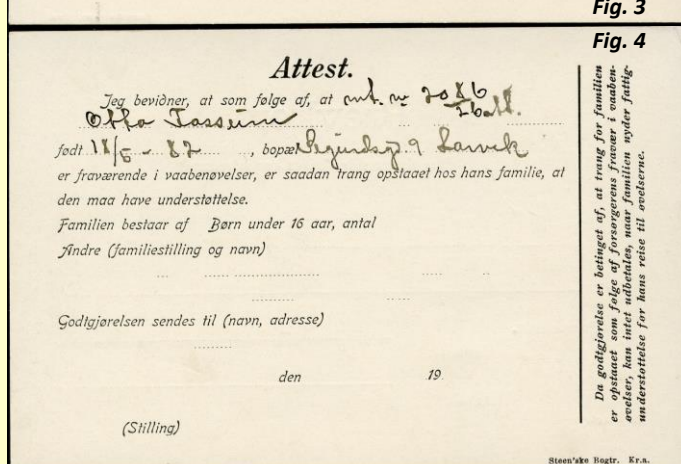 Fig. 3
Fig. 4
Attest.
Jeg bevidner, at som følge af, at mt. nr 2086
Otto Tassum
født 18/5 - 87, bopæl 9 Larvik
er fraværende i vaabenøvelser, er saadan trang opstaaet hos hans familie, at
den maa have understøttelse.
Familien bestaar af Børn under 16 aar, antal
Andre (familiestilling og navn)
Godtgjørelsen sendes til (navn, adresse)
den 19
(Stilling)
Da godtgjørelse er betinget af, at trang for familien
er opstaaet som følge af forsørgerens fravær i vaaben-
øvelser, kan intet udbetales, naar familien nyder fattig-
understøttelse før hans reise til øvelserne.
Steen'ske Bogtr. Kr.a.